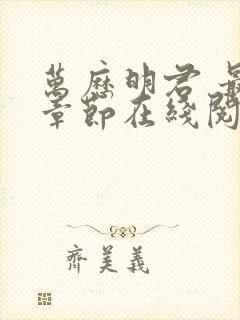 萬歷明君 最
章節在綫閱
齊美義